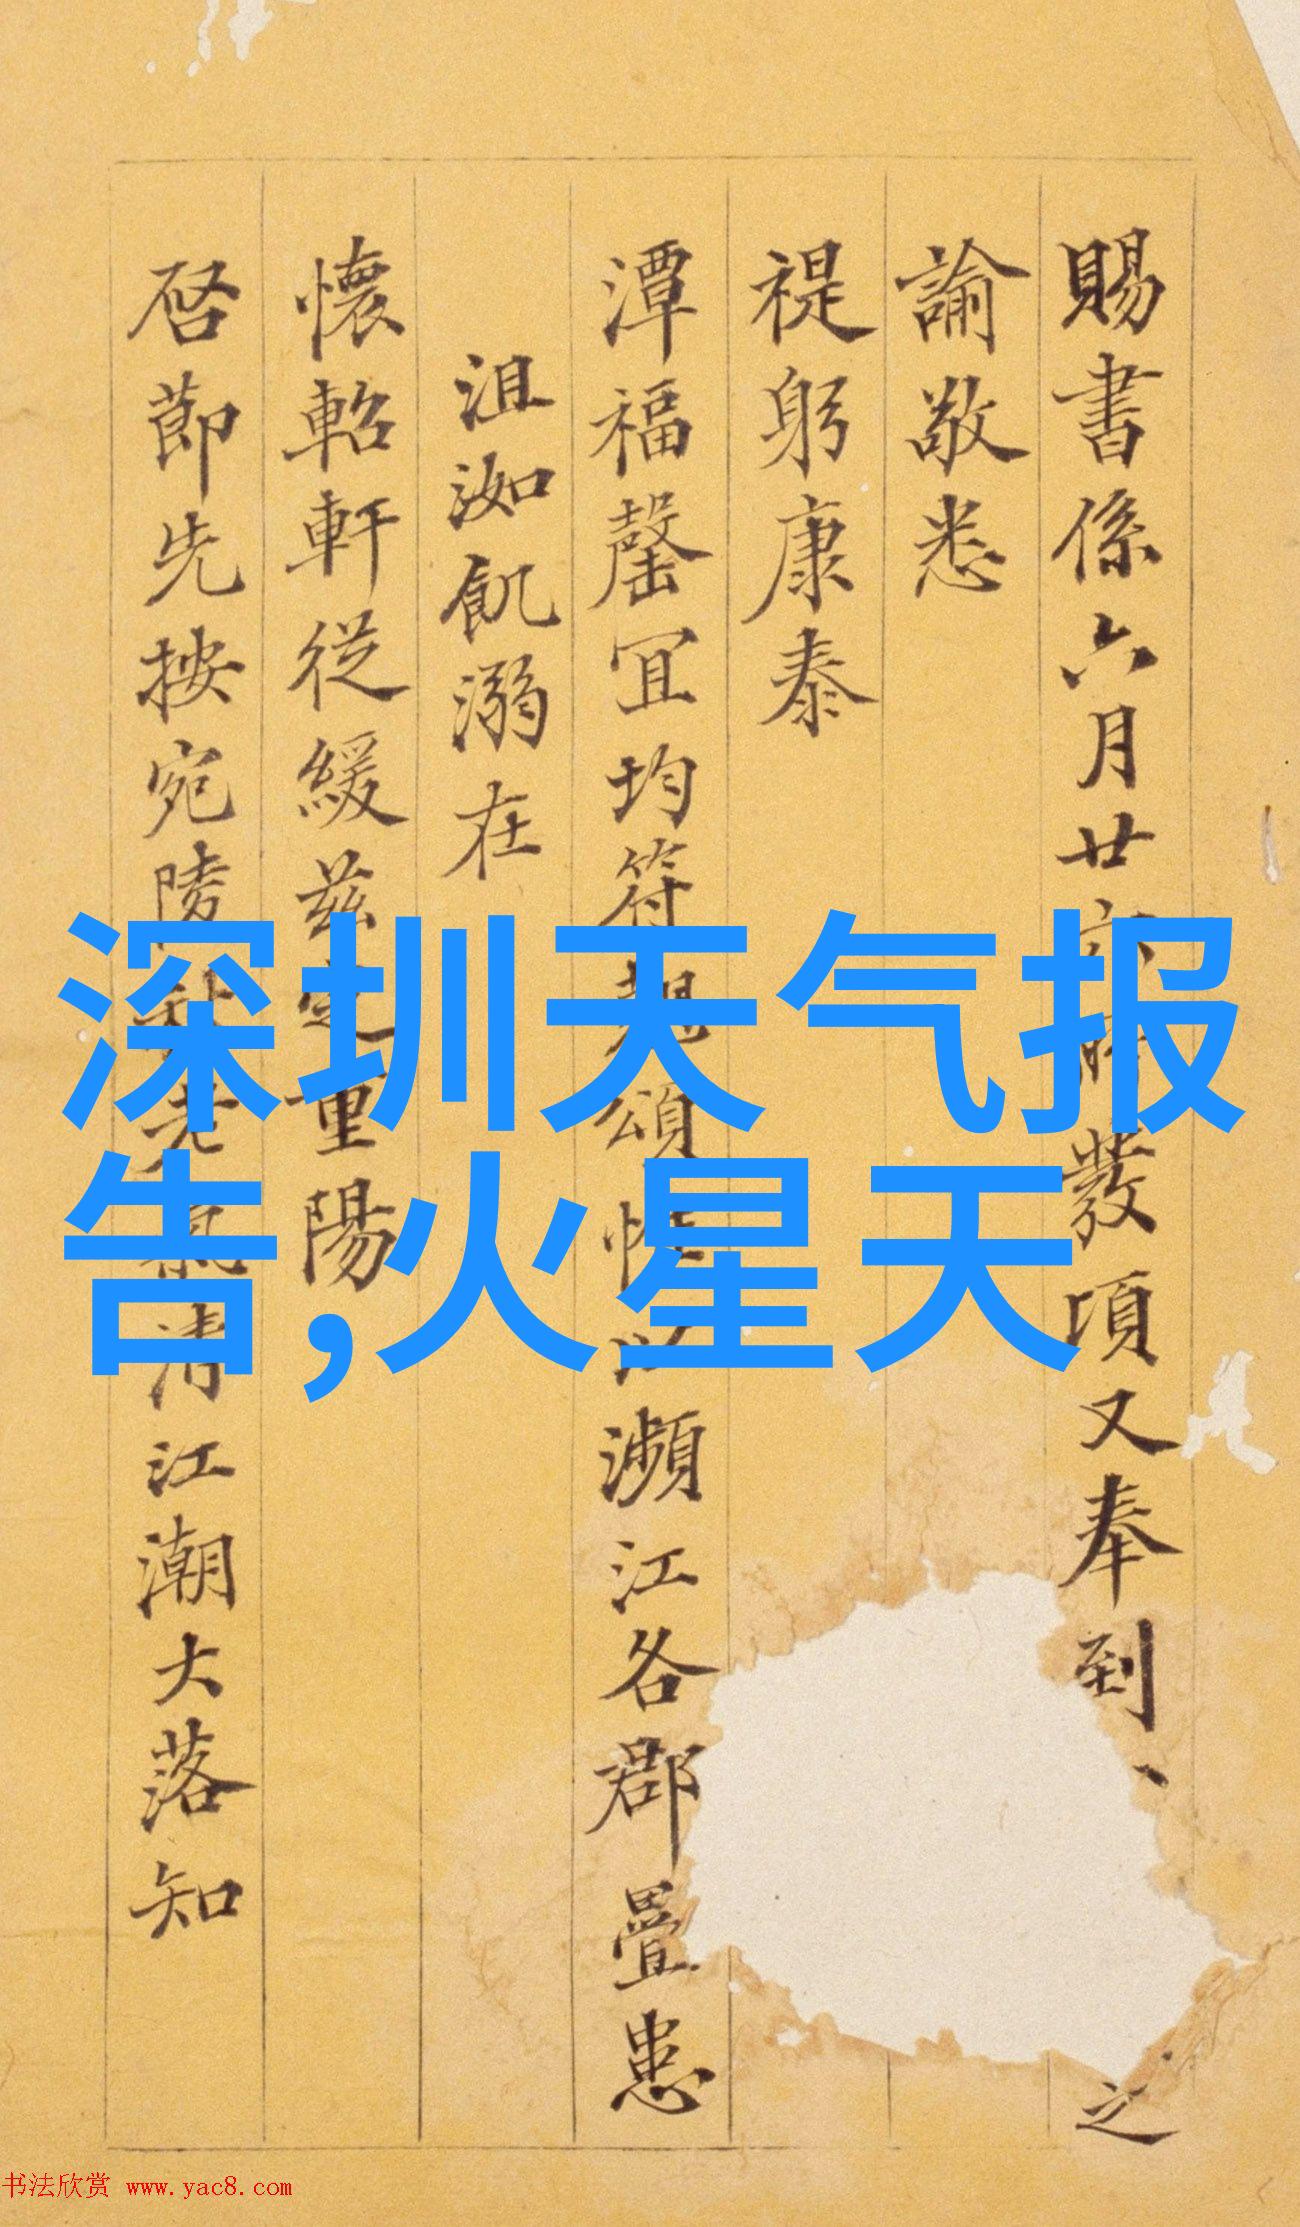 深圳天气报
告,火星天
賜書係六月廿六發項又奉到之
諭敬悉
禔躬康泰
潭福罄冝均符頌瀕江各郡疊患
沮洳飢溺在
懷軺軒從緩茲重陽
啓節先按宛陵老清江潮大落知
书法欣赏 www.yac8.com